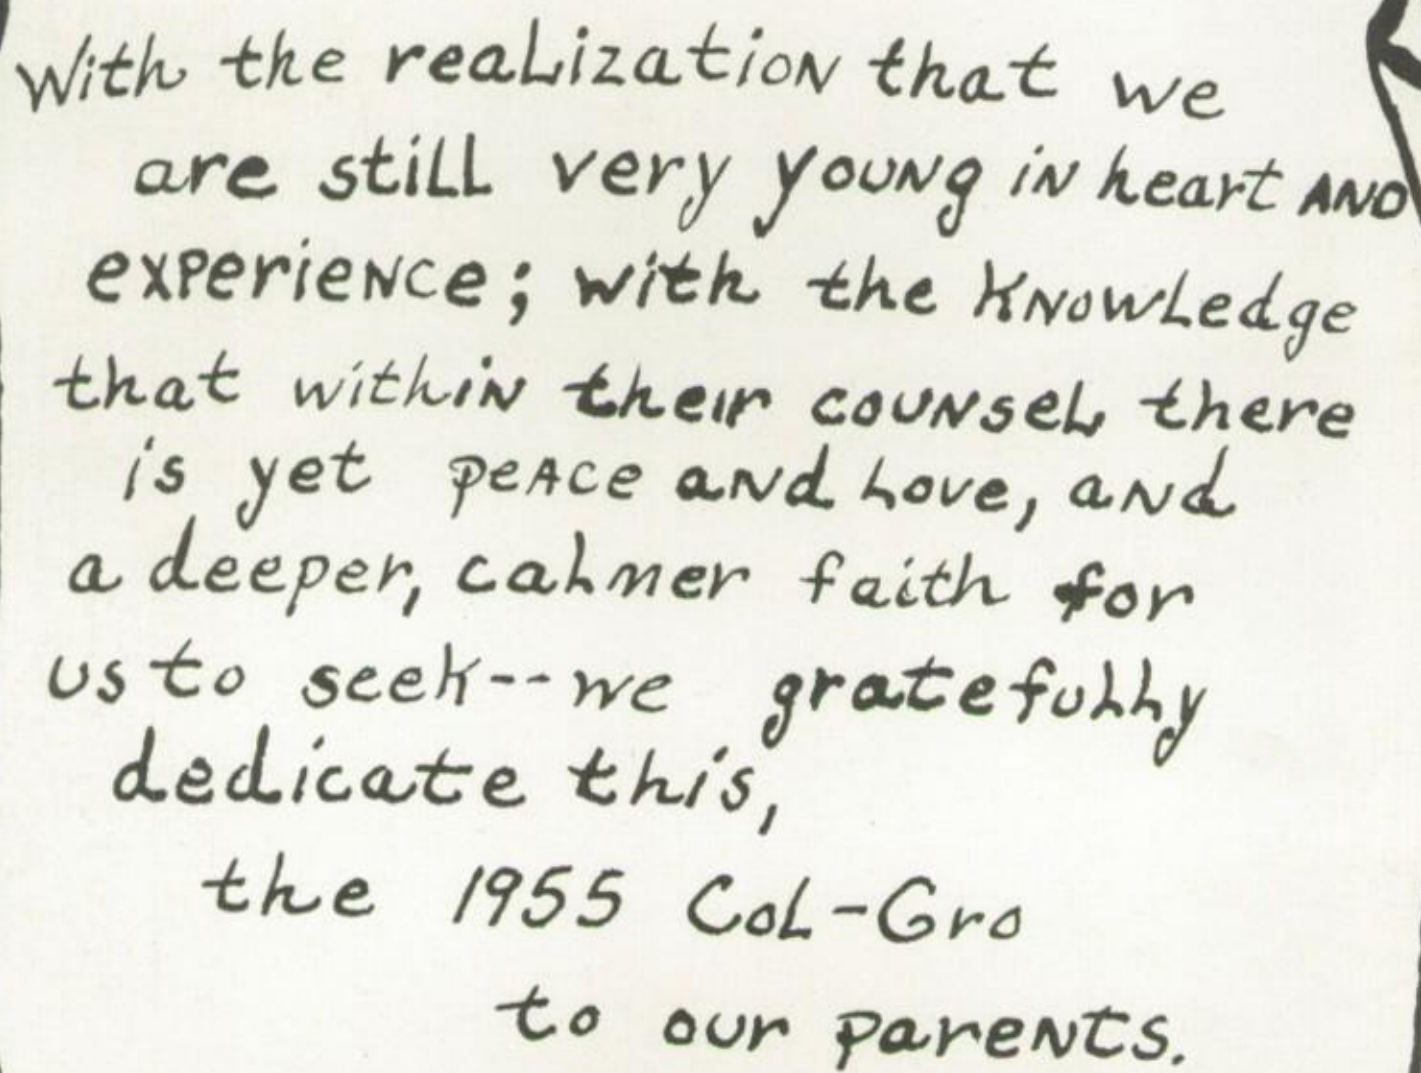 With the realization that we
are still very young in heart AND
experience; with the Knowledge
that within their counsel there
is yet peace and love, and
a deeper, calmer faith for
us to seek--we gratefully
dedicate this,
the 1955 Col-Gro
to our parents.